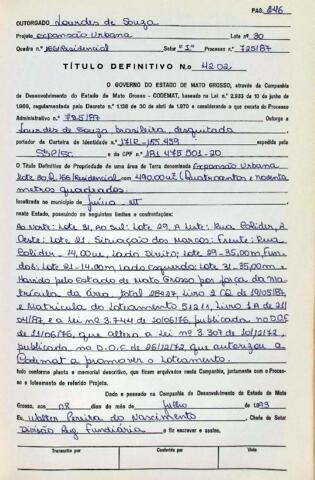 PAG. 246
OUTORGADO Lourdes de Souza
Projeto Expansão Urbana Lote nº 30
Quadra n.º 166/Residencial Setor "1" Processo n.º 725/87
TÍTULO DEFINITIVO N.o 4202
O GOVERNO DO ESTADO DE MATO GROSSO, através da Companhia
de Desenvolvimento do Estado de Mato Grosso - CODEMAT, baseado na Lei n.º 2.933 de 10 de junho de
1969, regulamentada pelo Decreto n.º 1.138 de 30 de abril de 1970 e considerando o que consta do Processo
Administrativo n.º 725/87 Outorga a
Lourdes de Souza, brasileira, desquitada
portador da Carteira de Identidade n.º 17/R-155.459 expedida pela
SSP/SC e do CPF n.º 181 475 501-20
O Título Definitivo de Propriedade de uma área de Terra denominada Expansão Urbana
Lote 30 Q. 166/Residencial com 490,00m² (Quatrocentos e noventa
metros quadrados.
localizada no município de Juína - MT
neste Estado, possuindo os seguintes limites e confrontações:
Ao Norte: Lote 31, Ao Sul: Lote 29, A Leste: Rua Colider, A
Oeste: Lote 21. Situação dos Marcos: Frente: Rua
Colider - 14,00m, Lado Direito: Lote 29 - 35,00m, Fun-
dos: Lote 21 - 14,00m, Lado Esquerdo: Lote 31 - 35,00m e
Havido pelo Estado de Mato Grosso por força da Ma-
trícula da área, total 28427, Livro 2 CQ de 19/05/87,
e Matrícula do Loteamento 51211, Livro 1-A de 211
54/87, e a Lei nº 3.744 de 10/06/76, publicada no D.O.E
de 11/06/76, que altera a Lei nº 3.307 de 10/12/72,
publicada no D.O.E de 26/12/72, que autorizou a
Codemat a promover o Loteamento.
tudo conforme planta e memorial descritivo, que ficam arquivados nesta Companhia, juntamente com o Processo
e loteamento do referido Projeto.
Dado e passado na Companhia de Desenvolvimento do Estado de Mato
Grosso, aos 08 dias do mês de julho 1.993
Eu, Walter Pereira do Nascimento, Chefe do Setor
Divisão Reg. Fundiária o fiz escrever e assino.
Transcrito por Conferido por Visto